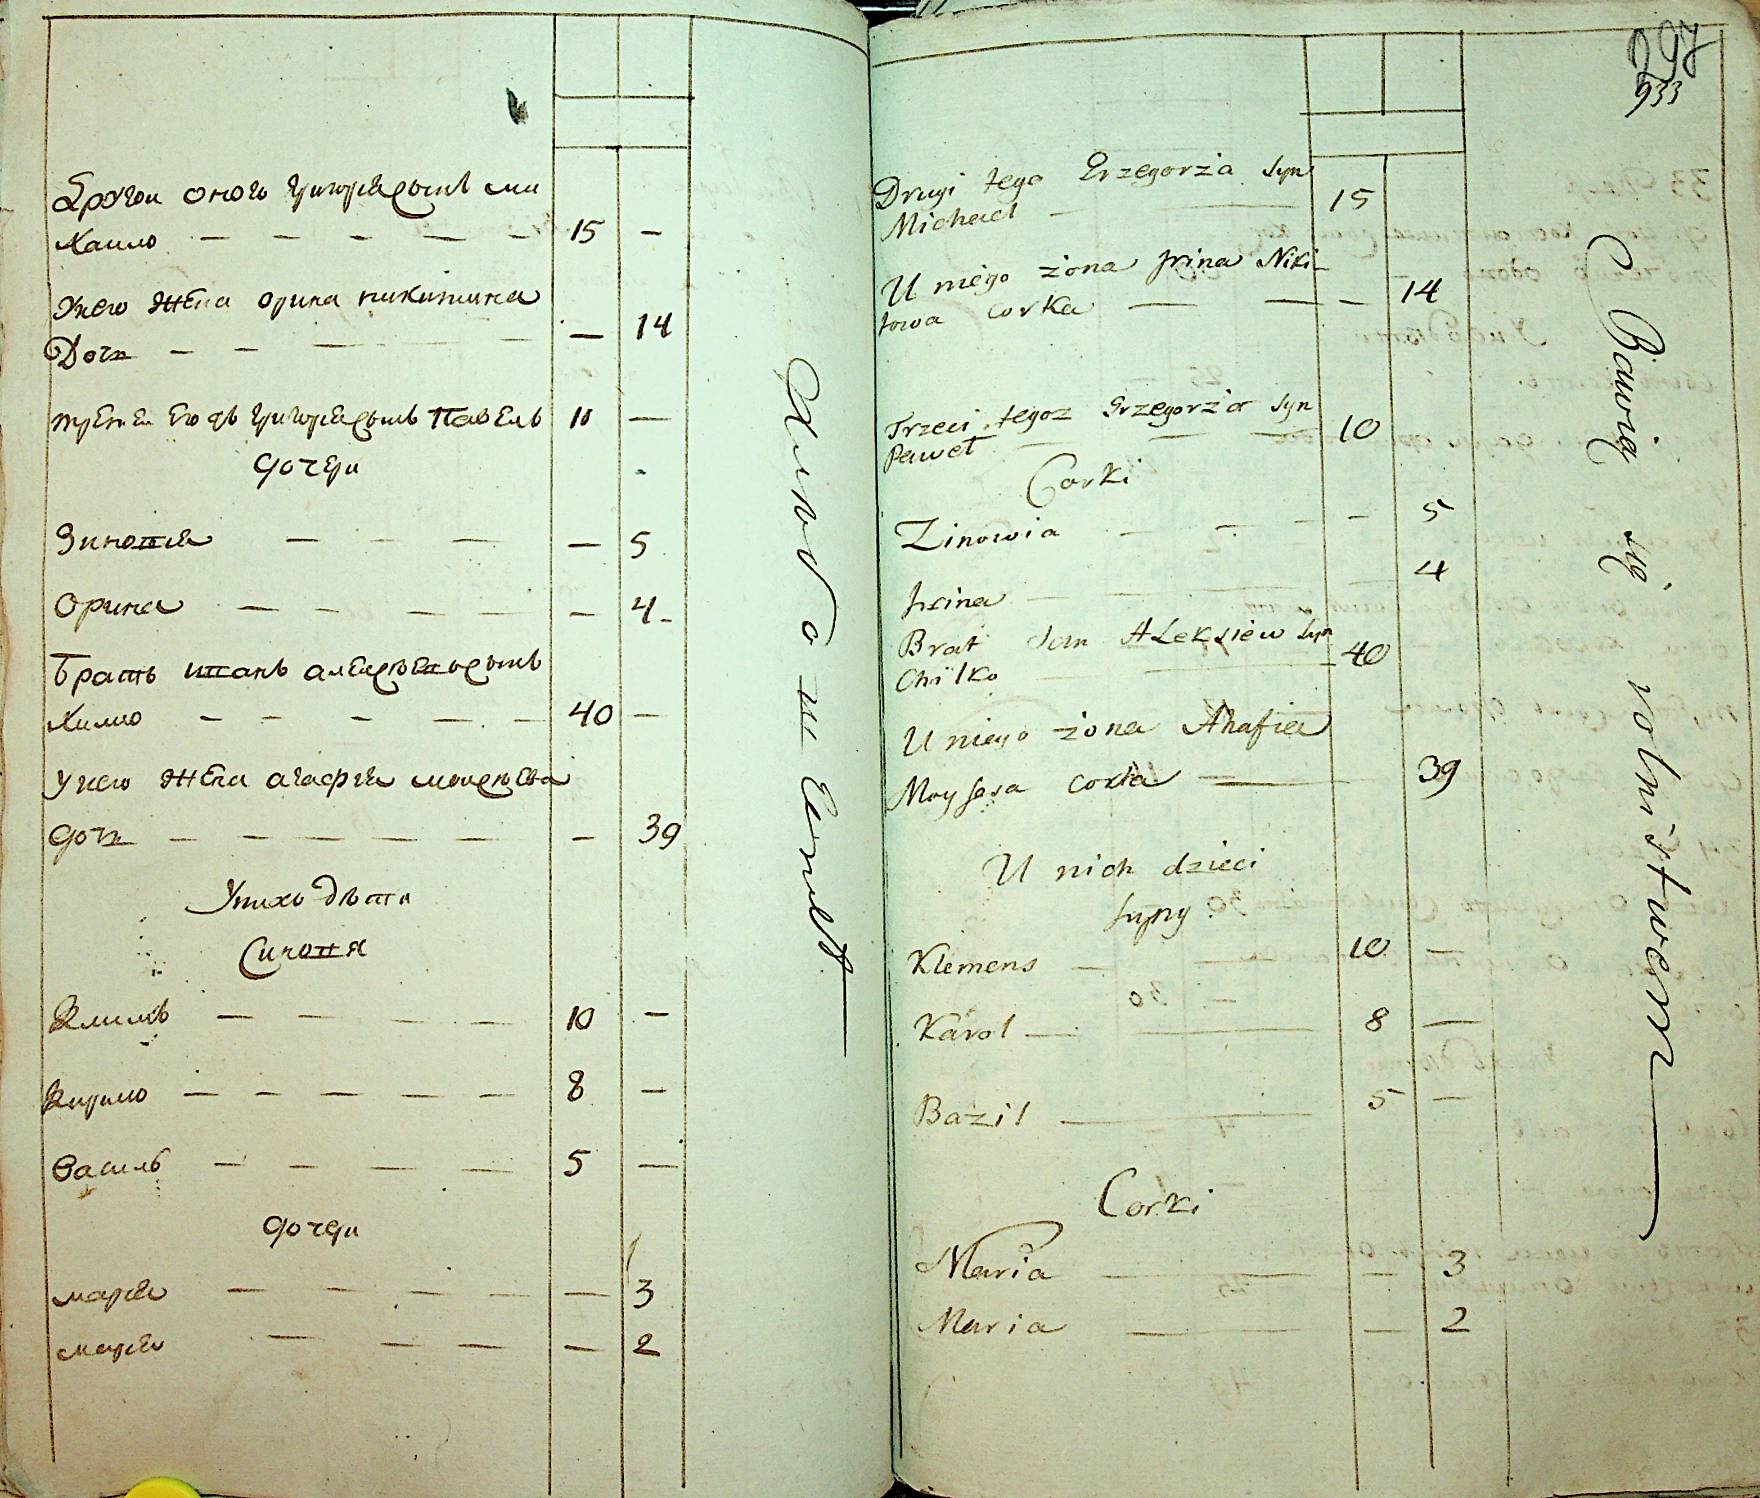 Другои оного григорья сынъ ми
хаило — — — — — 15 —
У него жена орина никитина
Дочь — — — — — 14
третеи его же григорья сынъ павелъ 10 —
дочери
Зиновия — — — — 5
Орина — — — — — 4
Братъ иванъ алексѣевъ сынъ
Хилко — — — — — 40 —
У него жена агафия моисѣева
дочь — — — — — — 39
У нихъ дѣти
Сыновя
Климъ — — — — 10 —
Кирило — — — — — 8 —
Василь — — — — 5 —
дочери
мария — — — — — 3
мария — — — — — 2
297
933
Drugi tego Grzegorza Syn
Michael — — 15
U niego żona Irina Niki-
towa Corka — — — 14
Trzeci tegoz Grzegorza Syn
Paweł — — — 10
Corki
Zinowia — — — — 5
Irina — — — — 4
Brat Jan Aleksiew Syn
Chilko — — — 40
U niego żona Ahafia
Moysesa Corka — — 39
U nich dzieci
Syny
Klemens — — 10 —
Karol — — 8 —
Bazil — — 5 —
Corki
Maria — — — 3
Maria — — — 2
Bawią się rolnistwem